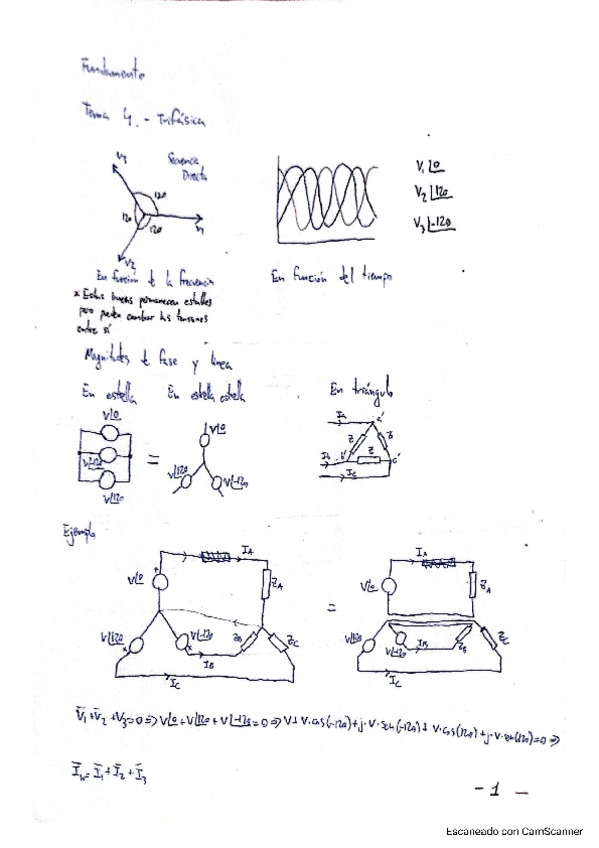 Fundamento
Tema 4.- Trifásica
Secuencia
Directa
V3
120
120
120
V1
V2
V1 |0
V2 |120
V3 |-120
En función de la frecuencia
En función del tiempo
* Estas líneas permanecen estables
pero pueden cambiar las tensiones
entre sí
Magnitudes de fase y línea
En estella
En estella estella
En triángulo
V|0
V|-120
V|120
=
V|0
V|120
V|-120
Ia
a'
Z
Z
Ib
b'
Z
c'
Ic
Ejemplo
V|0
IA
ZA
V|120
V|-120
ZB
ZC
IB
IC
=
V|0
IA
ZA
V|120
V|-120
IB
ZB
ZC
IC
V̄1+V̄2+V̄3=0 => V|0+V|120+V|-120=0 => V+V·cos(-120)+j·V·sen(-120)+V·cos(120)+j·V·sen(120)=0 =>
ĪN=Ī1+Ī2+Ī3
-1-
Escaneado con CamScanner